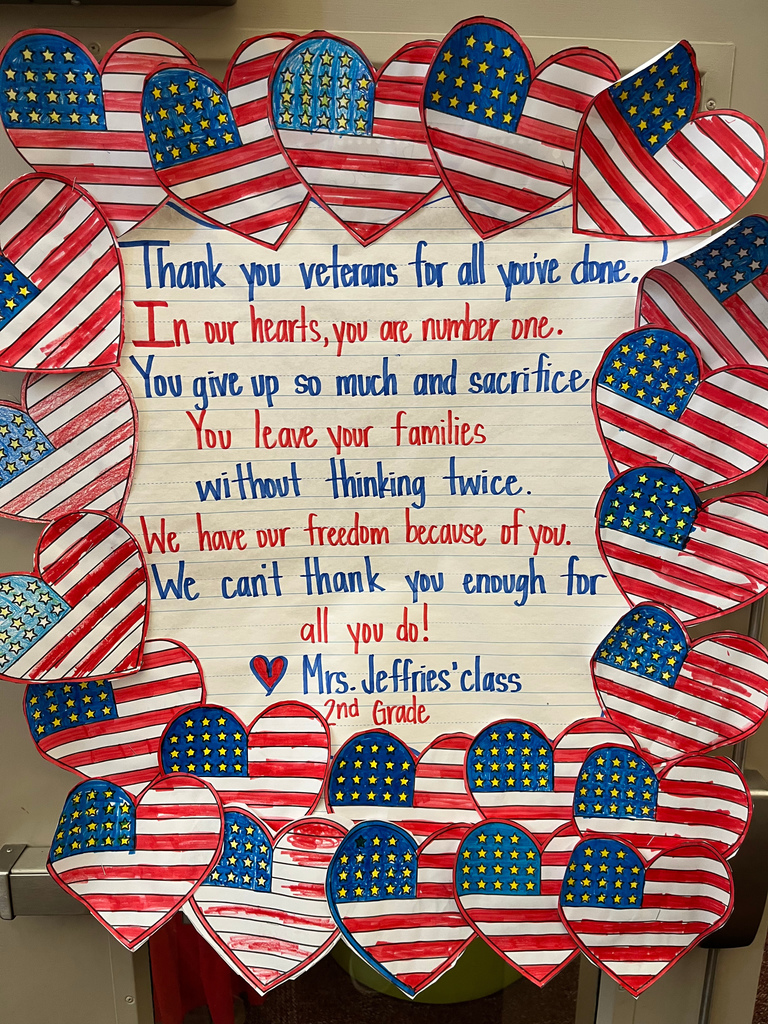 Thank you veterans for all you've done.
In our hearts, you are number one.
You give up so much and sacrifice
You leave your families
without thinking twice.
We have our freedom because of you.
We can't thank you enough for
all you do!
Mrs. Jeffries' class
2nd Grade